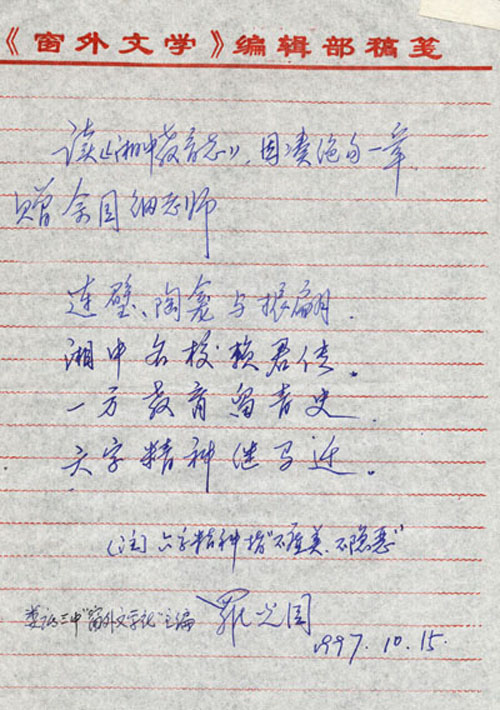 《窗外文学》编辑部稿笺
读《湘中教育志》，因凑绝句一章，
赠余国细老师
连璧、陶龛与振翩，
湘中名校赖君传。
一方教育留青史，
六字精神继马迁。
（注）六字精神指“不虚美、不隐恶”
娄底三中“窗外文学社”主编 罗光国
1997.10.15.